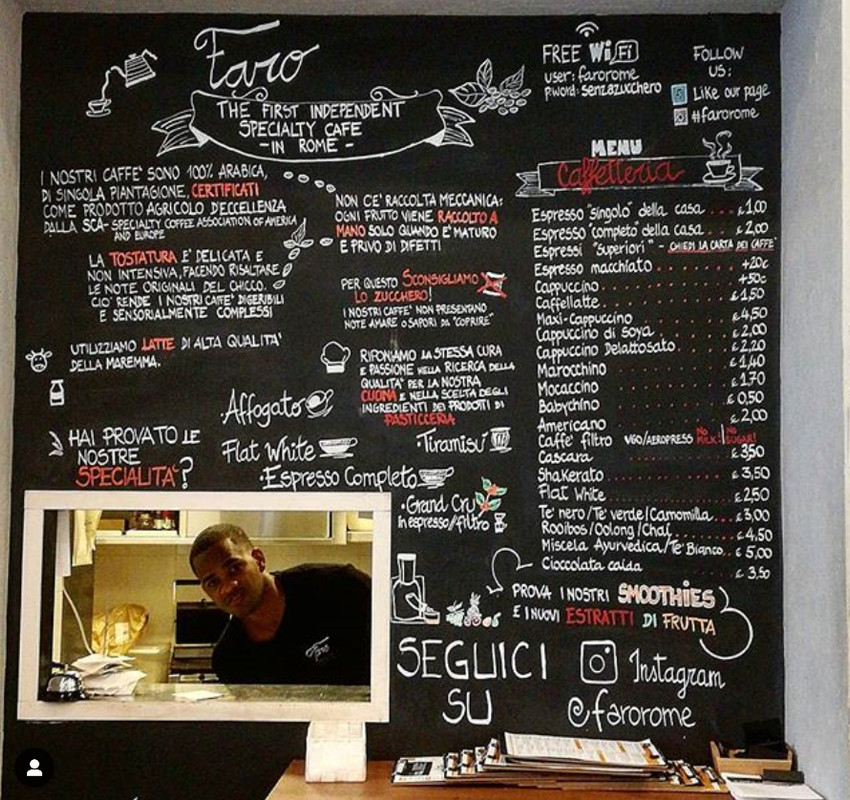 Faro
THE FIRST INDEPENDENT
SPECIALTY CAFE
- IN ROME -
I NOSTRI CAFFE' SONO 100% ARABICA,
DI SINGOLA PIANTAGIONE, CERTIFICATI
COME PRODOTTO AGRICOLO D'ECCELLENZA
DALLA SCA- SPECIALTY COFFEE ASSOCIATION OF AMERICA
AND EUROPE
LA TOSTATURA E' DELICATA E
NON INTENSIVA, FACENDO RISALTARE
LE NOTE ORIGINALI DEL CHICCO.
CIO' RENDE I NOSTRI CAFFE' DIGERIBILI
E SENSORIALMENTE COMPLESSI
UTILIZZIAMO LATTE DI ALTA QUALITA'
DELLA MAREMMA.
HAI PROVATO LE
NOSTRE
SPECIALITA'?
NON C'E' RACCOLTA MECCANICA:
OGNI FRUTTO VIENE RACCOLTO A
MANO SOLO QUANDO E' MATURO
E PRIVO DI DIFETTI
PER QUESTO SCONSIGLIAMO
LO ZUCCHERO!
I NOSTRI CAFFE' NON PRESENTANO
NOTE AMARE O SAPORI DA "COPRIRE"
RIPONIAMO LA STESSA CURA
E PASSIONE NELLA RICERCA DELLA
QUALITA' PER LA NOSTRA
CUCINA E NELLA SCELTA DEGLI
INGREDIENTI DEI PRODOTTI DI
PASTICCERIA
·Affogato
Flat White
·Tiramisu'
·Espresso Completo
·Grand Cru
in espresso//filtro
FREE WiFi
user: farorome
p.word: senzazucchero
FOLLOW
US:
Like our page
#farorome
MENU
Caffetteria
Espresso "singolo" della casa .... € 1,00
Espresso "completo" della casa ... € 2,00
Espressi "superiori" - CHIEDI LA CARTA DEI CAFFE'
Espresso macchiato ..... +20c
Cappuccino ..... +50c
Caffellatte ..... € 1,50
Maxi-Cappuccino ..... € 4,50
Cappuccino di soya ..... € 2,00
Cappuccino Delattosato ..... € 2,20
Marocchino ..... € 1,40
Mocaccino ..... € 1,70
Babychino ..... € 0,50
Americano ..... € 2,00
Caffe' filtro V60/AEROPRESS NO MILK! NO SUGAR!
Cascara ..... € 3,50
Shakerato ..... € 3,50
Flat White ..... € 2,50
Te' nero/Te' verde/Camomilla.. € 3,00
Rooibos/Oolong/Chai ..... € 4,50
Miscela Ayurvedica/Te' Bianco.. € 5,00
Cioccolata calda ..... € 3,50
PROVA I NOSTRI SMOOTHIES
E I NUOVI ESTRATTI DI FRUTTA
SEGUICI
SU
Instagram
@farorome
Faro